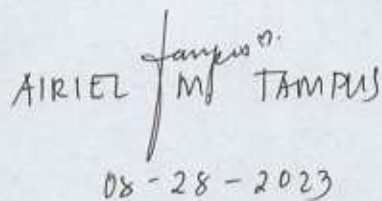 AIRIEL M TAMPUS
08-28-2023